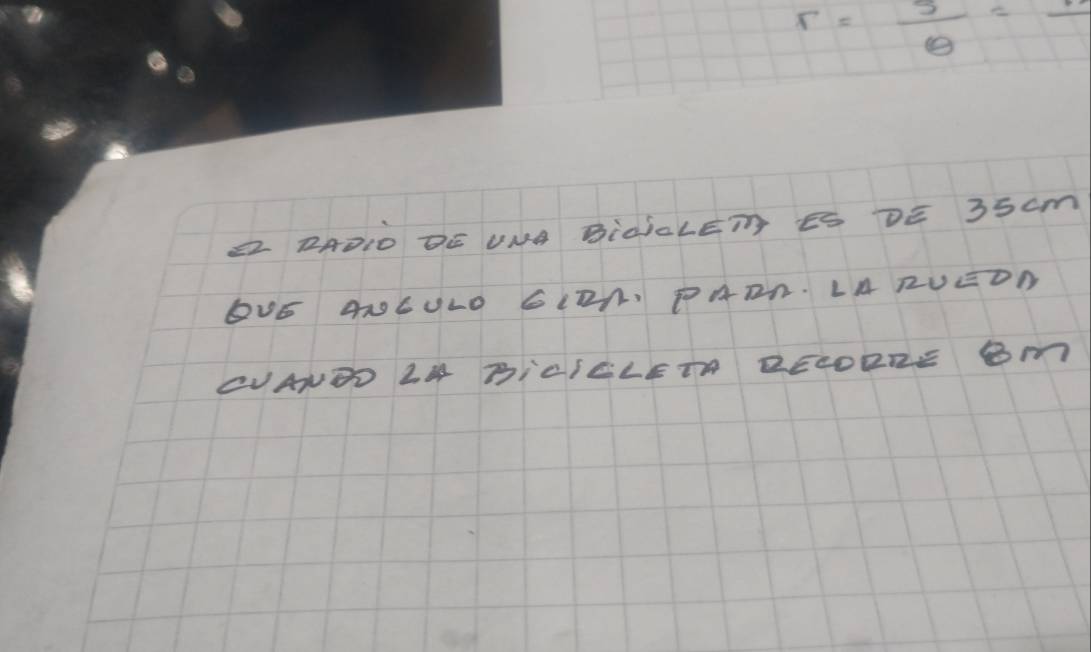 r = S / θ =
EL RADIO DE UNA BICICLETA ES DE 35cm
QUE ANGULO GIRA. PARA. LA RUEDA
CUANDO LA BICICLETA RECORRE 8m